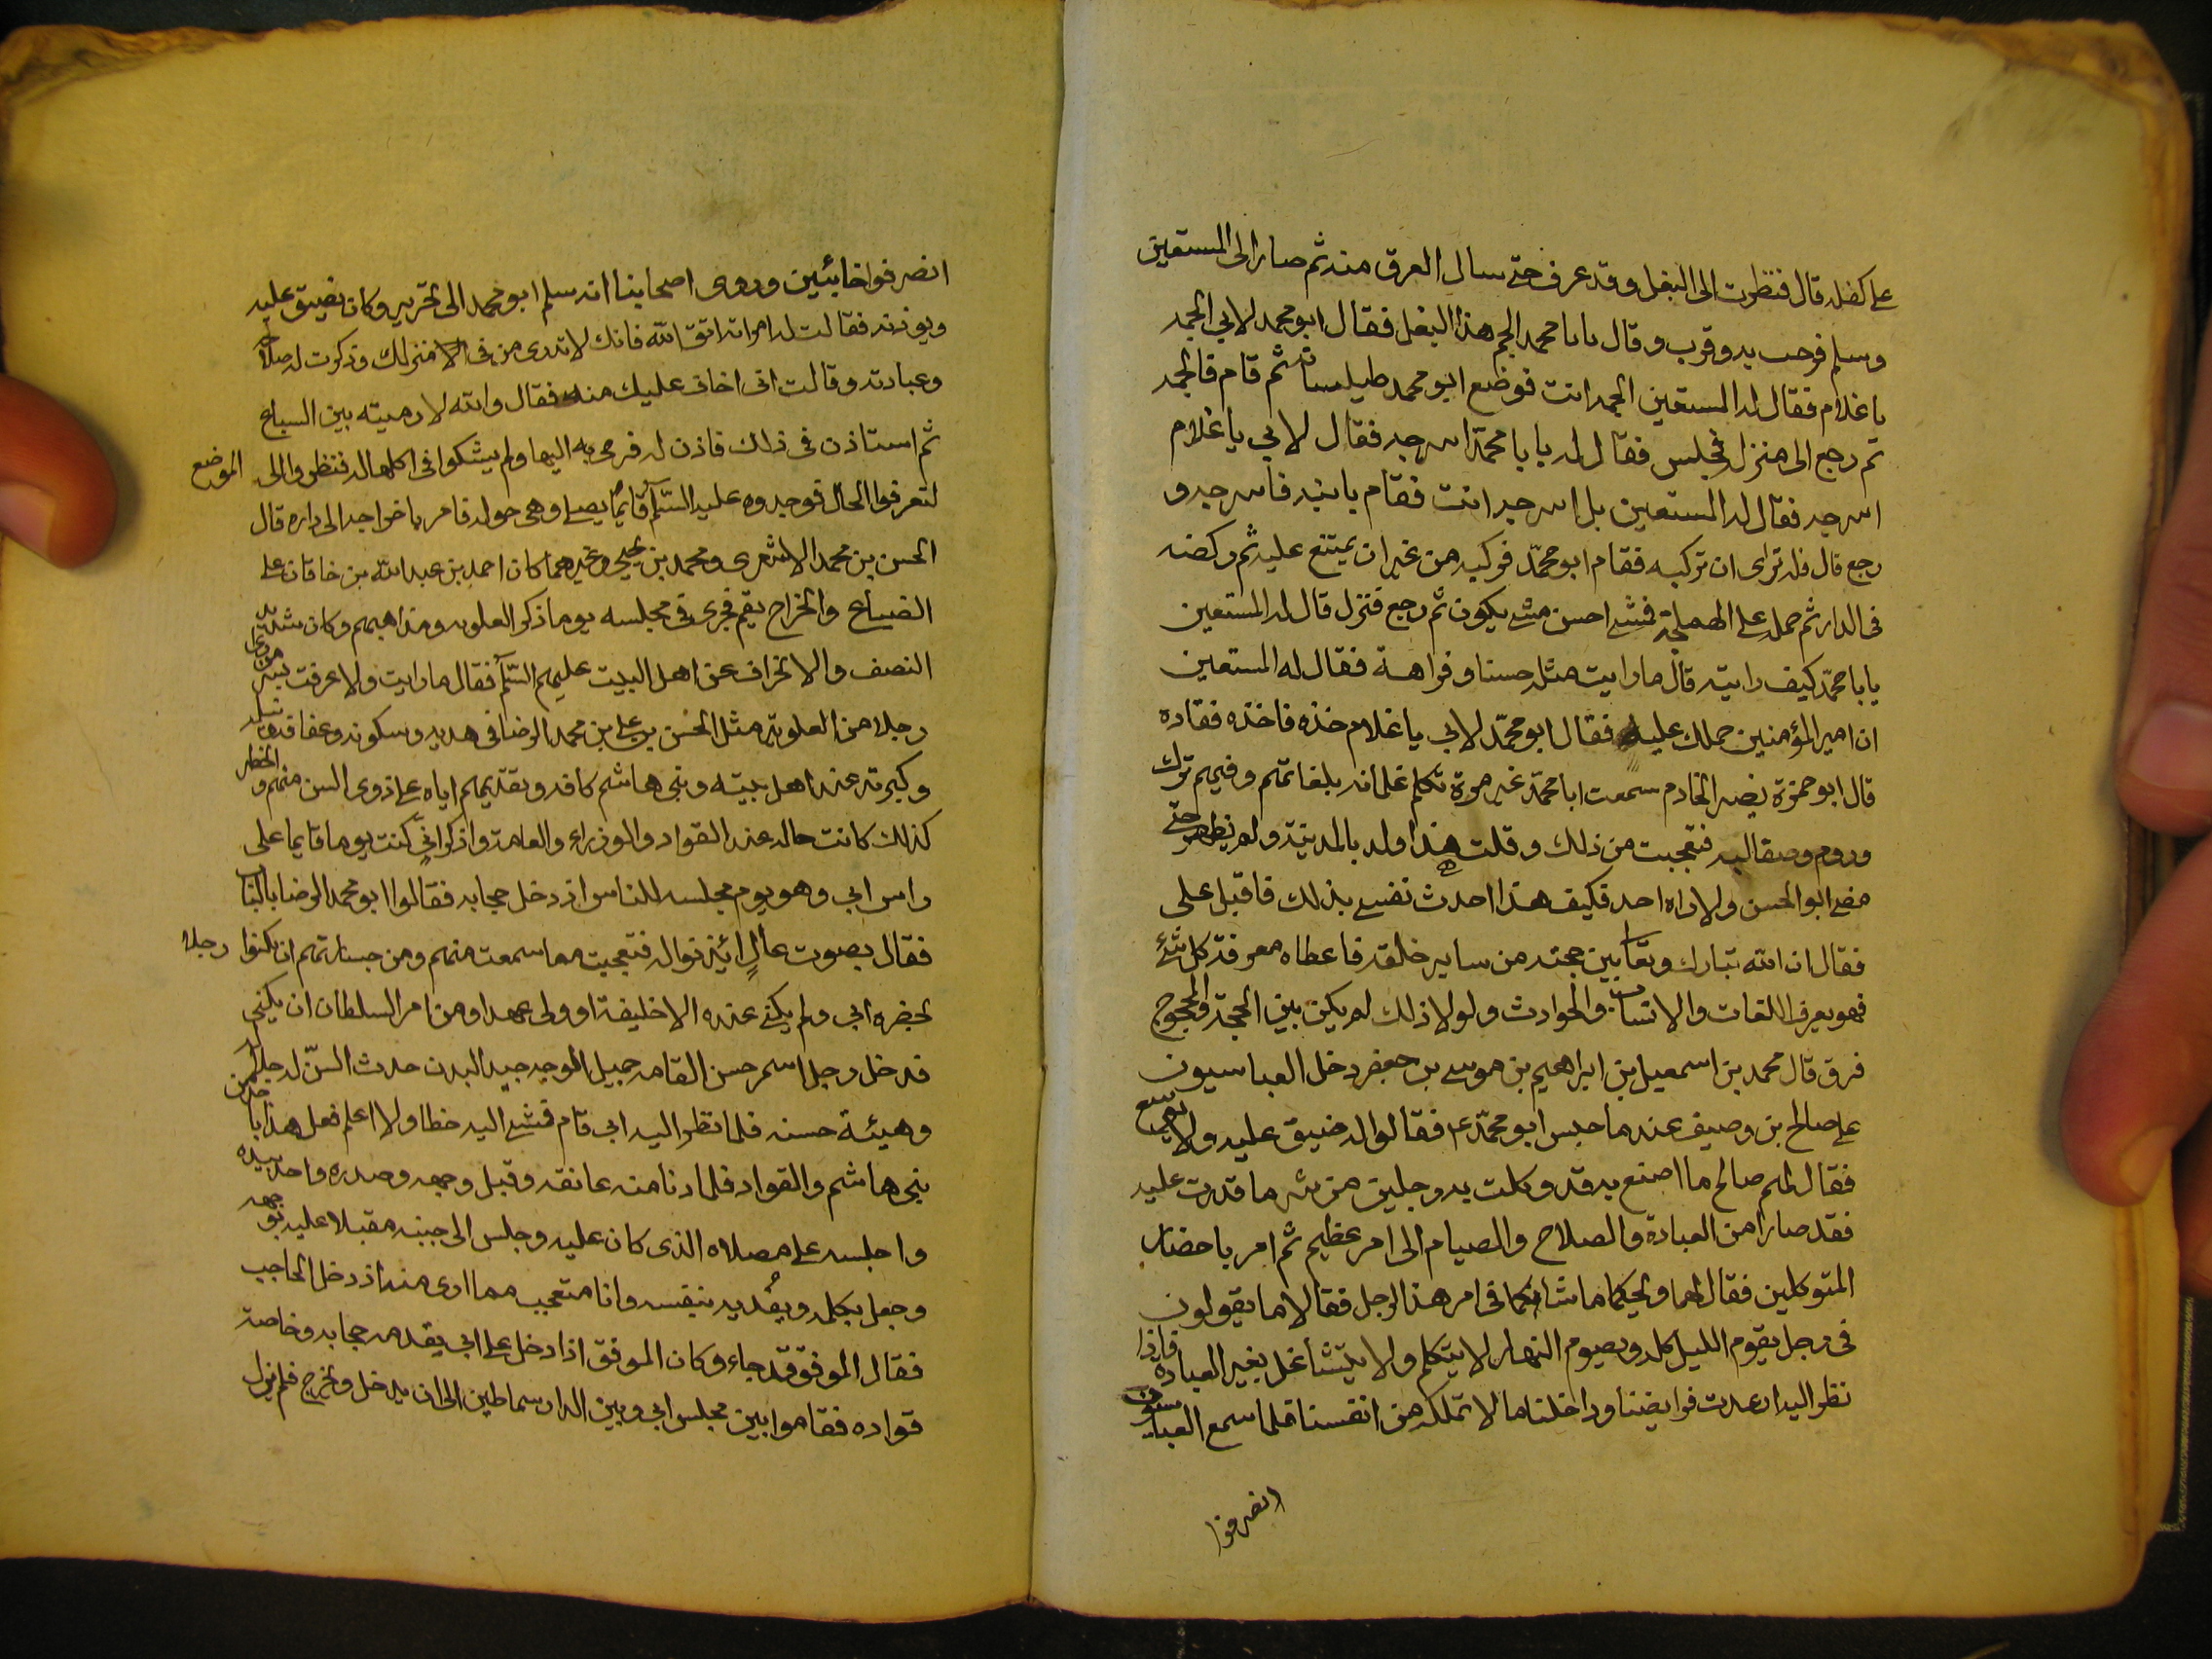 على كفله قال فنظرت الى البغل وقد عرف حتى سال العرق منه ثم صار الى المستعين
وسلم فرحب به وقرب وقال يابا محمد الجم هذا البغل فقال ابو محمد لابي الجمه
يا غلام فقال له المستعين الجمه انت فوضع ابو محمد طيلسانه ثم قام فالجمه
ثم رجع الى منزل فجلس فقال له يا با محمّد اسرجه فقال لابي يا غلام
اسرجه فقال له المستعين بل اسرجه انت فقام بانيه فاسرجه و
رجع قال فله ترى ان تركبه فقام ابو محمّد فركبه من غير ان يمتنع عليه ثم ركضه
فى الدار ثم حمله على الهملجة فمشى احسن مشى يكون ثم رجع فنزل قال له المستعين
يابا محمّد كيف رايته قال ما رايت مثله حسنا وفراهة فقال له المستعين
ان امير المؤمنين حملك عليه فقال ابو محمّد لابي يا غلام خذه فاخذه فقاده
قال ابو حمزة نصير الخادم سمعت ابا محمّد غير مرة تكلم غلمانه بلغاتهم وفيهم ترك
وروم وصقالبه فتعجبت من ذلك وقلت هذا ولد بالمدينة ولم يظهر حتى
مضى ابو الحسن ولا راه احد فكيف هذا احدث نفسى بذلك فاقبل على
فقال ان الله تبارك وتعا بين حجته من ساير خلقه فاعطاه معرفة كل شئ
فهو يعرف اللغات والانساب والحوادث ولولا ذلك لم يكن بين الحجة والمحجوج
فرق قال محمد بن اسمعيل بن ابراهيم بن موسى بن جعفر دخل العباسيون
على صالح بن وصيف عندما حبس ابو محمّد ع فقالوا له ضيق عليه ولا توسع
فقال لهم صالح ما اصنع به قد وكلت به رجلين من شر ما قدرت عليه
فقد صارا من العبادة والصلاح والصيام الى امر عظيم ثم امر باحضار
المتوكلين فقال لهما ويحكما ما شانكما فى امر هذا الرجل فقالا ما يقولون
فى رجل يقوم الليل كله ويصوم النهار لا يتكلم ولا يتشاغل بغير العبادة فاذا
نظر اليه ارعدت فرايضنا وداخلنا ما لا تملكه من انفسنا فلما سمع العباسيون
انصرفوا
انصرفوا خائبين وروى اصحابنا انه سلم ابو محمد الى تحرير وكان نضيق عليه
ويوذنه فقالت له امراته اتق الله فانك لا تدرى من فى منزلك وذكرت له صلاحه
وعبادته وقالت انى اخاف عليك منه فقال والله لا رميته بين السباع
ثم استاذن فى ذلك فاذن له فرمى به اليها ولم يشكوا فى اكلها له فنظروا الى الموضع
لتعرفوا الحال فوجدوه عليه السّلم قايماً يصلى وهى حوله فامر باخراجه الى داره قال
الحسن بن محمد الاشعرى ومحمد بن يحيى وغيرهما كان احمد بن عبدالله بن خاقان على
الضياع والخراج بقم فجرى فى مجلسه يوما ذكر العلويه ومذاهبهم وكان شديد
النصف والانحراف عن اهل البيت عليهم السّلم فقال ما رايت ولا عرفت بسر من راى
رجلا من العلوية مثل الحسن بن على بن محمد الرضا فى هديه وسكونه وعفافه ونبله
وكبرته عند اهل بيته وبنى هاشم كافه وتقديمهم اياه على ذوى السن منهم والخطر
كذلك كانت حاله عند القواد والوزراء والعامة واذكر انّى كنت يوما قايما على
راس ابى وهو يوم مجلسه للناس اذ دخل حجابه فقالوا ابو محمد الرضا بالباب
فقال بصوت عالٍ ائذنوا له فتعجبت مما سمعت منهم ومن جسارتهم ان يكنوا رجلا
بحضره ابى ولم يكنى عنده الا خليفة او ولى عهد او من امر السلطان ان يكنى
فدخل رجل اسمر حسن القامه جميل الوجه جيد البدن حدث السنّ له جلالة
وهيئة حسنه فلما نظر اليه ابى قام فمشى اليه خطا ولا اعلم فعل هذا باحد من
بنى هاشم والقواد فلما دنا منه عانقه وقبل وجهه وصدره واخذ بيده
واجلسه على مصلاه الذى كان عليه وجلس الى جنبه مقبلا عليه بوجهه
وجعل يكلمه ويفديه بنفسه وانا متعجب مما ارى منه اذ دخل الحاجب
فقال الموفق قد جاء وكان الموفق اذا دخل على ابى يقدمه حجابه وخاصة
قواده فقاموا بين مجلس ابى وبين الدار سماطين الى ان يدخل ويخرج فلم يزل